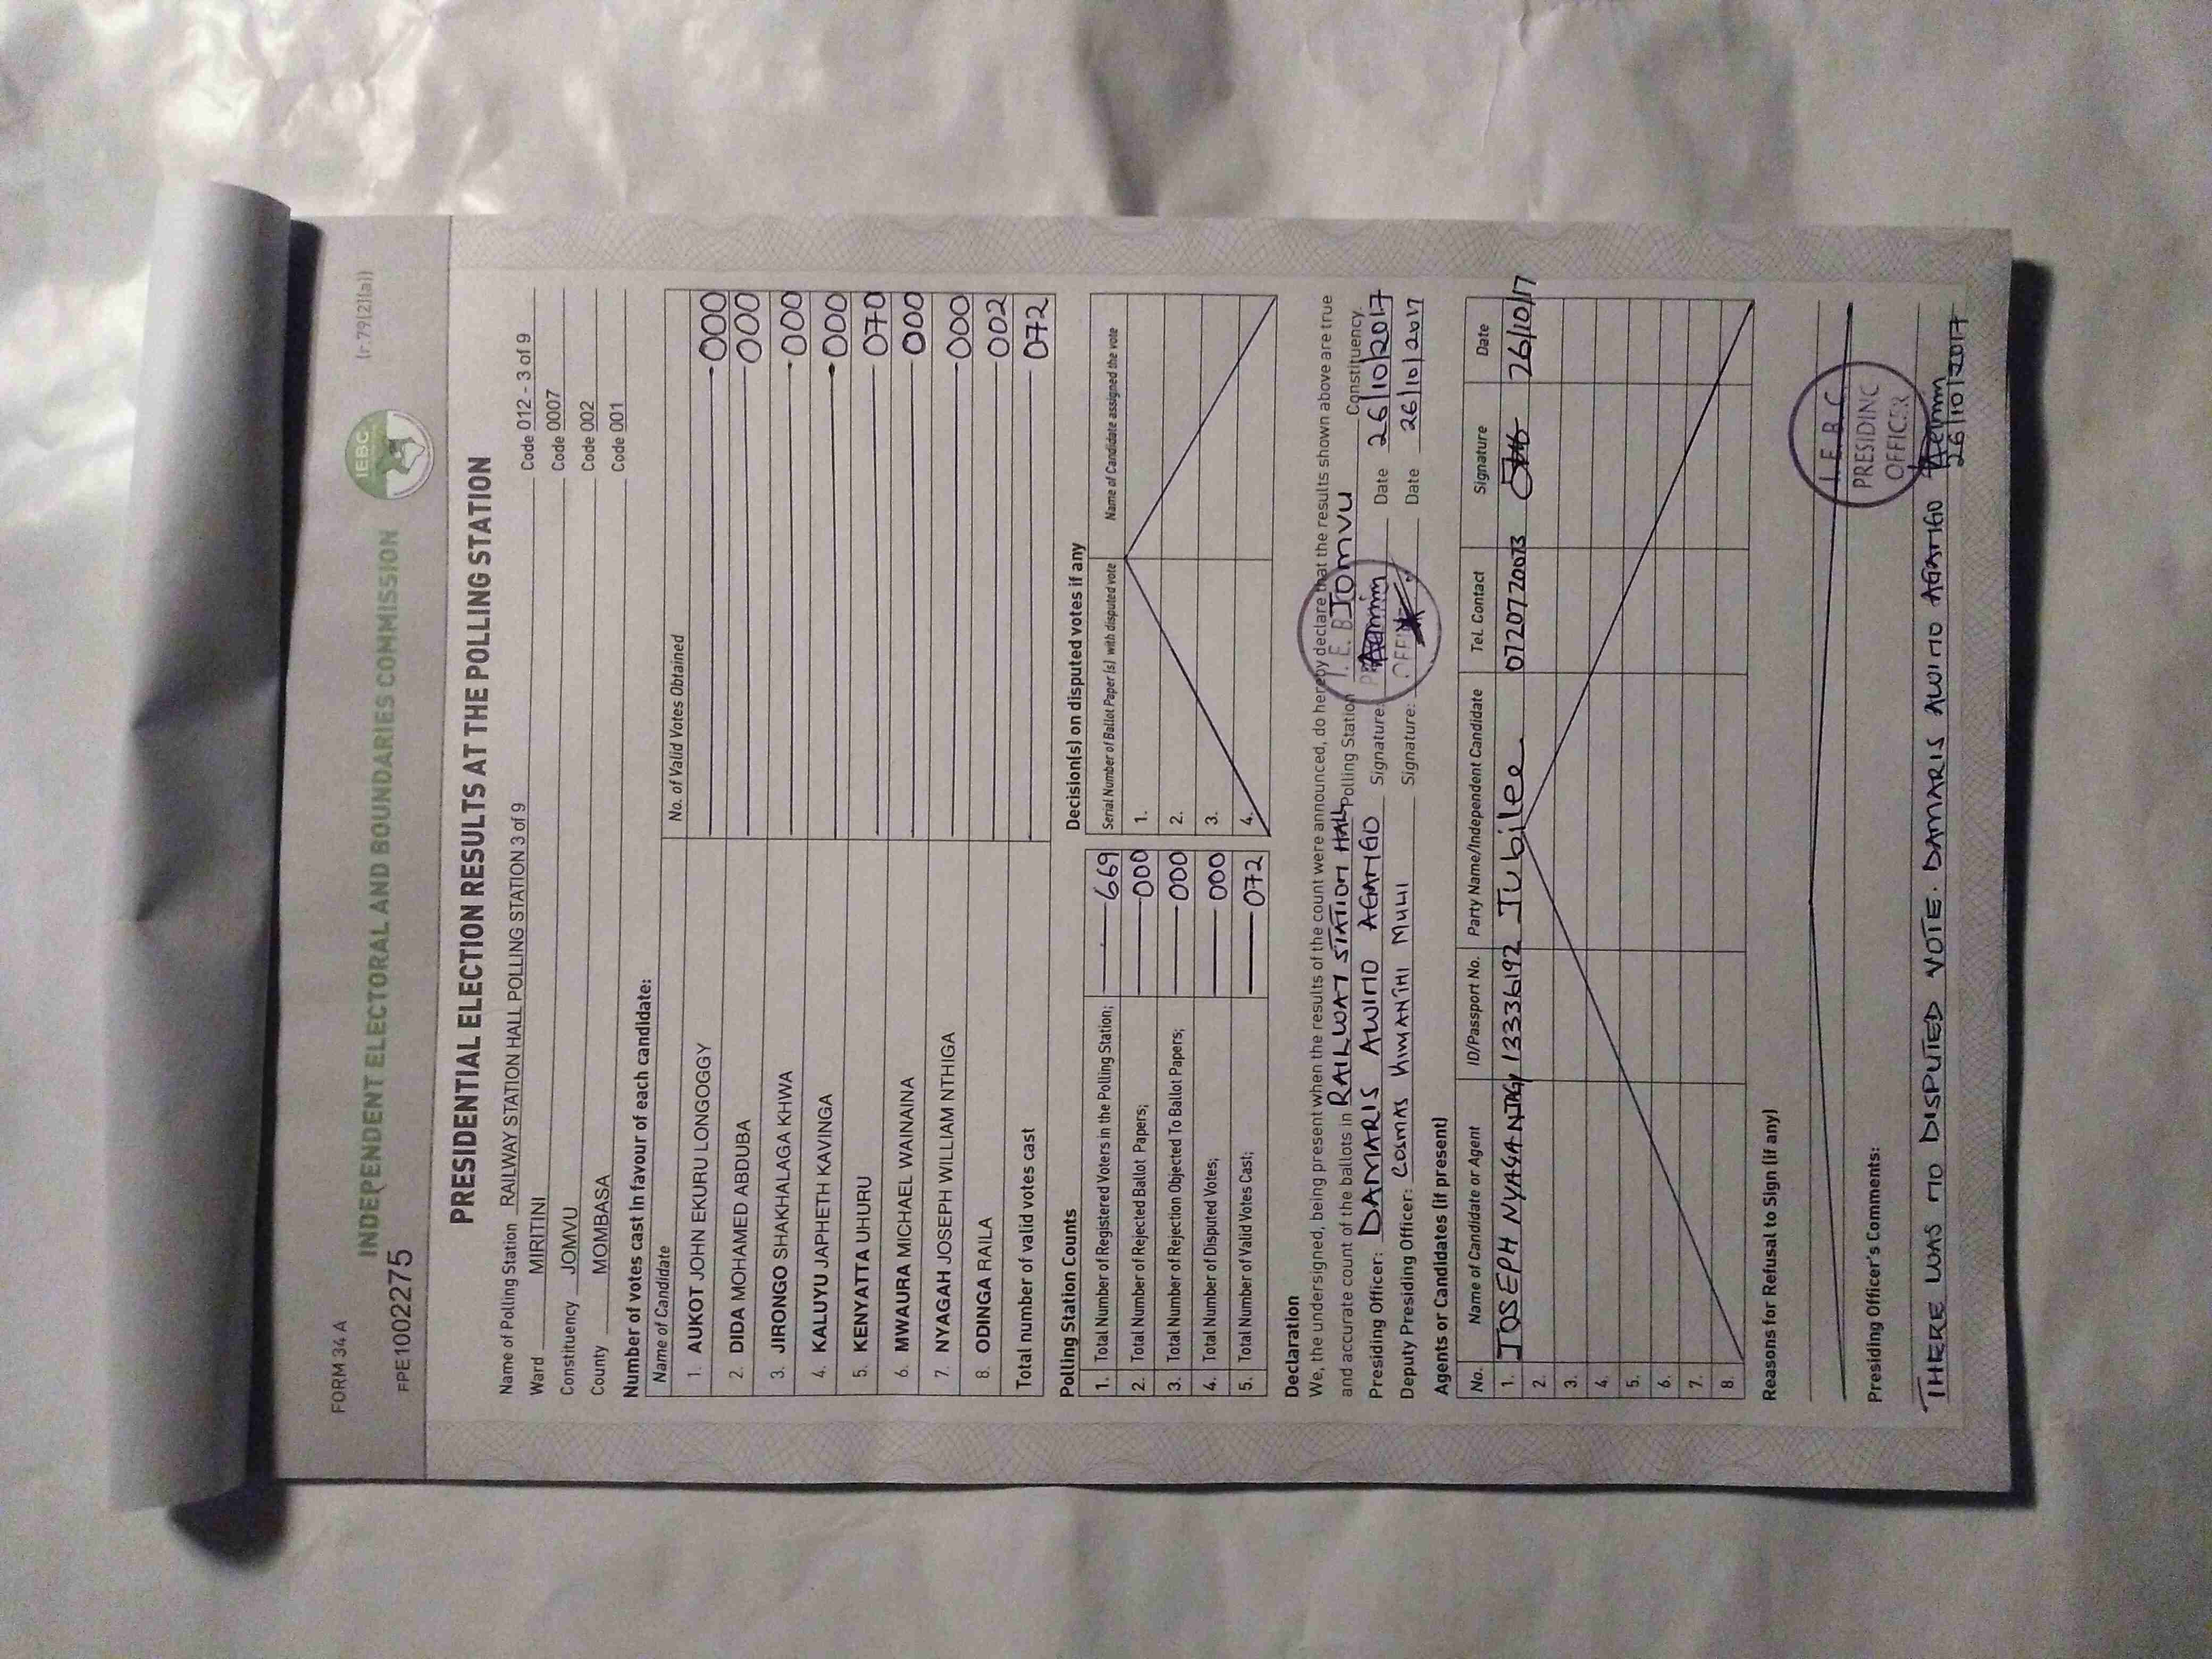 FORM 34 A
(r.79(2)(a))
INDEPENDENT ELECTORAL AND BOUNDARIES COMMISSION
IEBC
FPE10022275
PRESIDENTIAL ELECTION RESULTS AT THE POLLING STATION
Name of Polling Station RAILWAY STATION HALL POLLING STATION 3 of 9 Code 012 - 3 of 9
Ward MIRITINI Code 0007
Constituency JOMVU Code 002
County MOMBASA Code 001
Number of votes cast in favour of each candidate:
Name of Candidate No. of Valid Votes Obtained
1. AUKOT JOHN EKURU LONGOGGY 000
2. DIDA MOHAMED ABDUBA 000
3. JIRONGO SHAKHALAGA KHWA 000
4. KALUYU JAPHETH KAVINGA 000
5. KENYATTA UHURU 070
6. MWAURA MICHAEL WAINAINA 000
7. NYAGAH JOSEPH WILLIAM NTHIGA 000
8. ODINGA RAILA 002
Total number of valid votes cast 072
Polling Station Counts
1. Total Number of Registered Voters in the Polling Station; 669
2. Total Number of Rejected Ballot Papers; 000
3. Total Number of Rejection Objected To Ballot Papers; 000
4. Total Number of Disputed Votes; 000
5. Total Number of Valid Votes Cast; 072
Decision(s) on disputed votes if any
Serial Number of Ballot Paper (s) with disputed vote Name of Candidate assigned the vote
1.
2.
3.
4.
Declaration
We, the undersigned, being present when the results of the count were announced, do hereby declare that the results shown above are true
and accurate count of the ballots in RAILWAY STATION HALL Polling Station JOMVU Constituency.
Presiding Officer: DAMARIS AWINO AGANGO Signature: Date 26/10/2017
Deputy Presiding Officer: COSMAS KIMANTHI MULI Signature: Date 26/10/2017
I.E.B
Agents or Candidates (if present)
No. Name of Candidate or Agent ID/Passport No. Party Name/Independent Candidate Tel. Contact Signature Date
1. JOSEPH 13336192 Jubilee 0720720073 26/10/17
2.
3.
4.
5.
6.
7.
8.
Reasons for Refusal to Sign (if any)
I.E.B.C
PRESIDING
OFFICER
Presiding Officer's Comments:
THERE WAS NO DISPUTED VOTE. DAMARIS AWINO AGANGO
26/10/2017